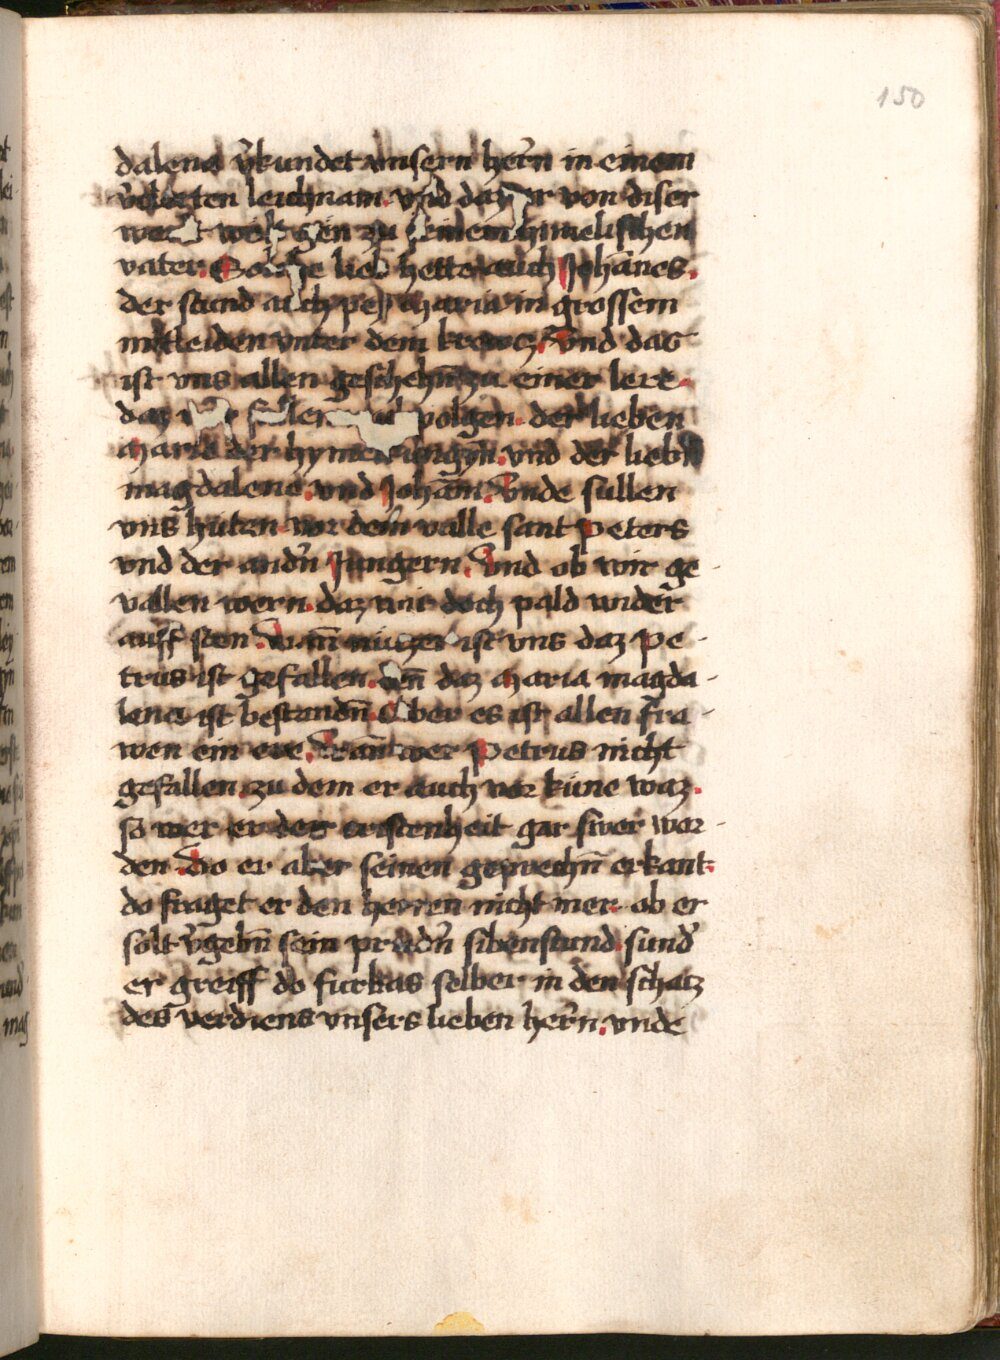 150
dalena v̉kundet vnsern her̄n in einem
v̉clerten leichnam. vnd daz er von diser
zu seinem himelischen
vater. liebe hette auch Johānes.
der stund auch pey maria in grossem
mitleiden vnter dem krewcz. Vnd das
ist vns allen geschehn̄ zu einer lere.
daz volgen. der lieben
maria der hymel kungȳn. vnd der liebn̄
magdalena. vnd Johām. Vnde sullen
vns huten vor dem valle sant peters
vnd der andn̄ Jungern. Vnd ob wir ge-
vallen wern. daz wir doch pald wider
auff sten. Wann̄ nüczer ist vns daz pe-
trus ist gefallen. den̄ daz maria magda-
lena ist bestandn̄. Aber es ist allen fra-
wen ein ere. Wan̄ wer Petrus nicht
gefallen. zu dem er auch vor küne waz.
so wer er der cristenheit gar swer wor-
den. Do er aber seinen geprechn̄ erkant.
do fraget er den herren nicht mer. ob er
solt v̉gebn̄ sein prudn̄ sibenstund. sund̉
er greiff do furbas selber in den schacz
des verdiens vnsers lieben her̄n. vnde